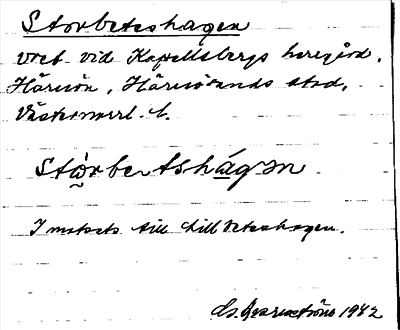 Storbeteshagen
vret vid Kapellsbergs herrgård,
Härnön, Härnösands stad,
Västernorrl. l.
Störbertshágen
I motsats till Lillbeteshagen.
1942